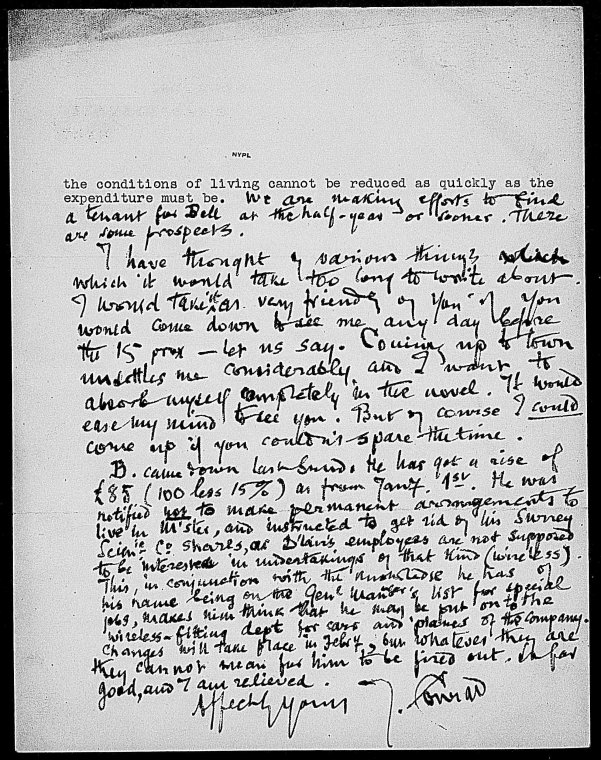 NYPL
the conditions of living cannot be reduced as quickly as the
expenditure must be. We are making efforts to find
a tenant for Bell at the half-year or sooner. There
are some prospects.
I have thought of various things which
which it would take too long to write about.
I would take it as very friendly of You if You
would come down to see me any day before
the 15 prox — let us say. Coming up to town
unsettles me considerably and I want to
absorb myself completely in the novel. It would
ease my mind to see you. But of course I could
come up if you couldn't spare the time.
B. came down last Sund. He has got a rise of
£85 (100 less 15%) as from Jany. 1st. He was
notified not to make permanent arrangements to
live in M'ster, and instructed to get rid of his Surrey
Scienc Co shares, as D'lair's employees are not supposed
to be interested in undertakings of that kind (wireless).
This, in conjunction with the knowledge he has of
his name being on the Genl Manger's list for special
jobs, makes him think that he may be put on to the
wireless-fitting dept for cars and planes of the Company.
Changes will take place in Febry, but whatever they are
they cannot mean for him to be fired out. So far
good, and I am relieved.
Affectly Yours
J. Conrad